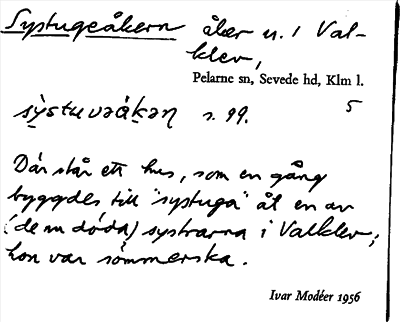 Systugeåkern åker n. i Val-
klev,
Pelarne sn, Sevede hd, Klm l.
s. 99. 5
Där står ett hus, som en gång
byggdes till "systuga" åt en av
(de nu döda) systrarna i Valklev;
hon var sömmerska.
Ivar Modéer 1956